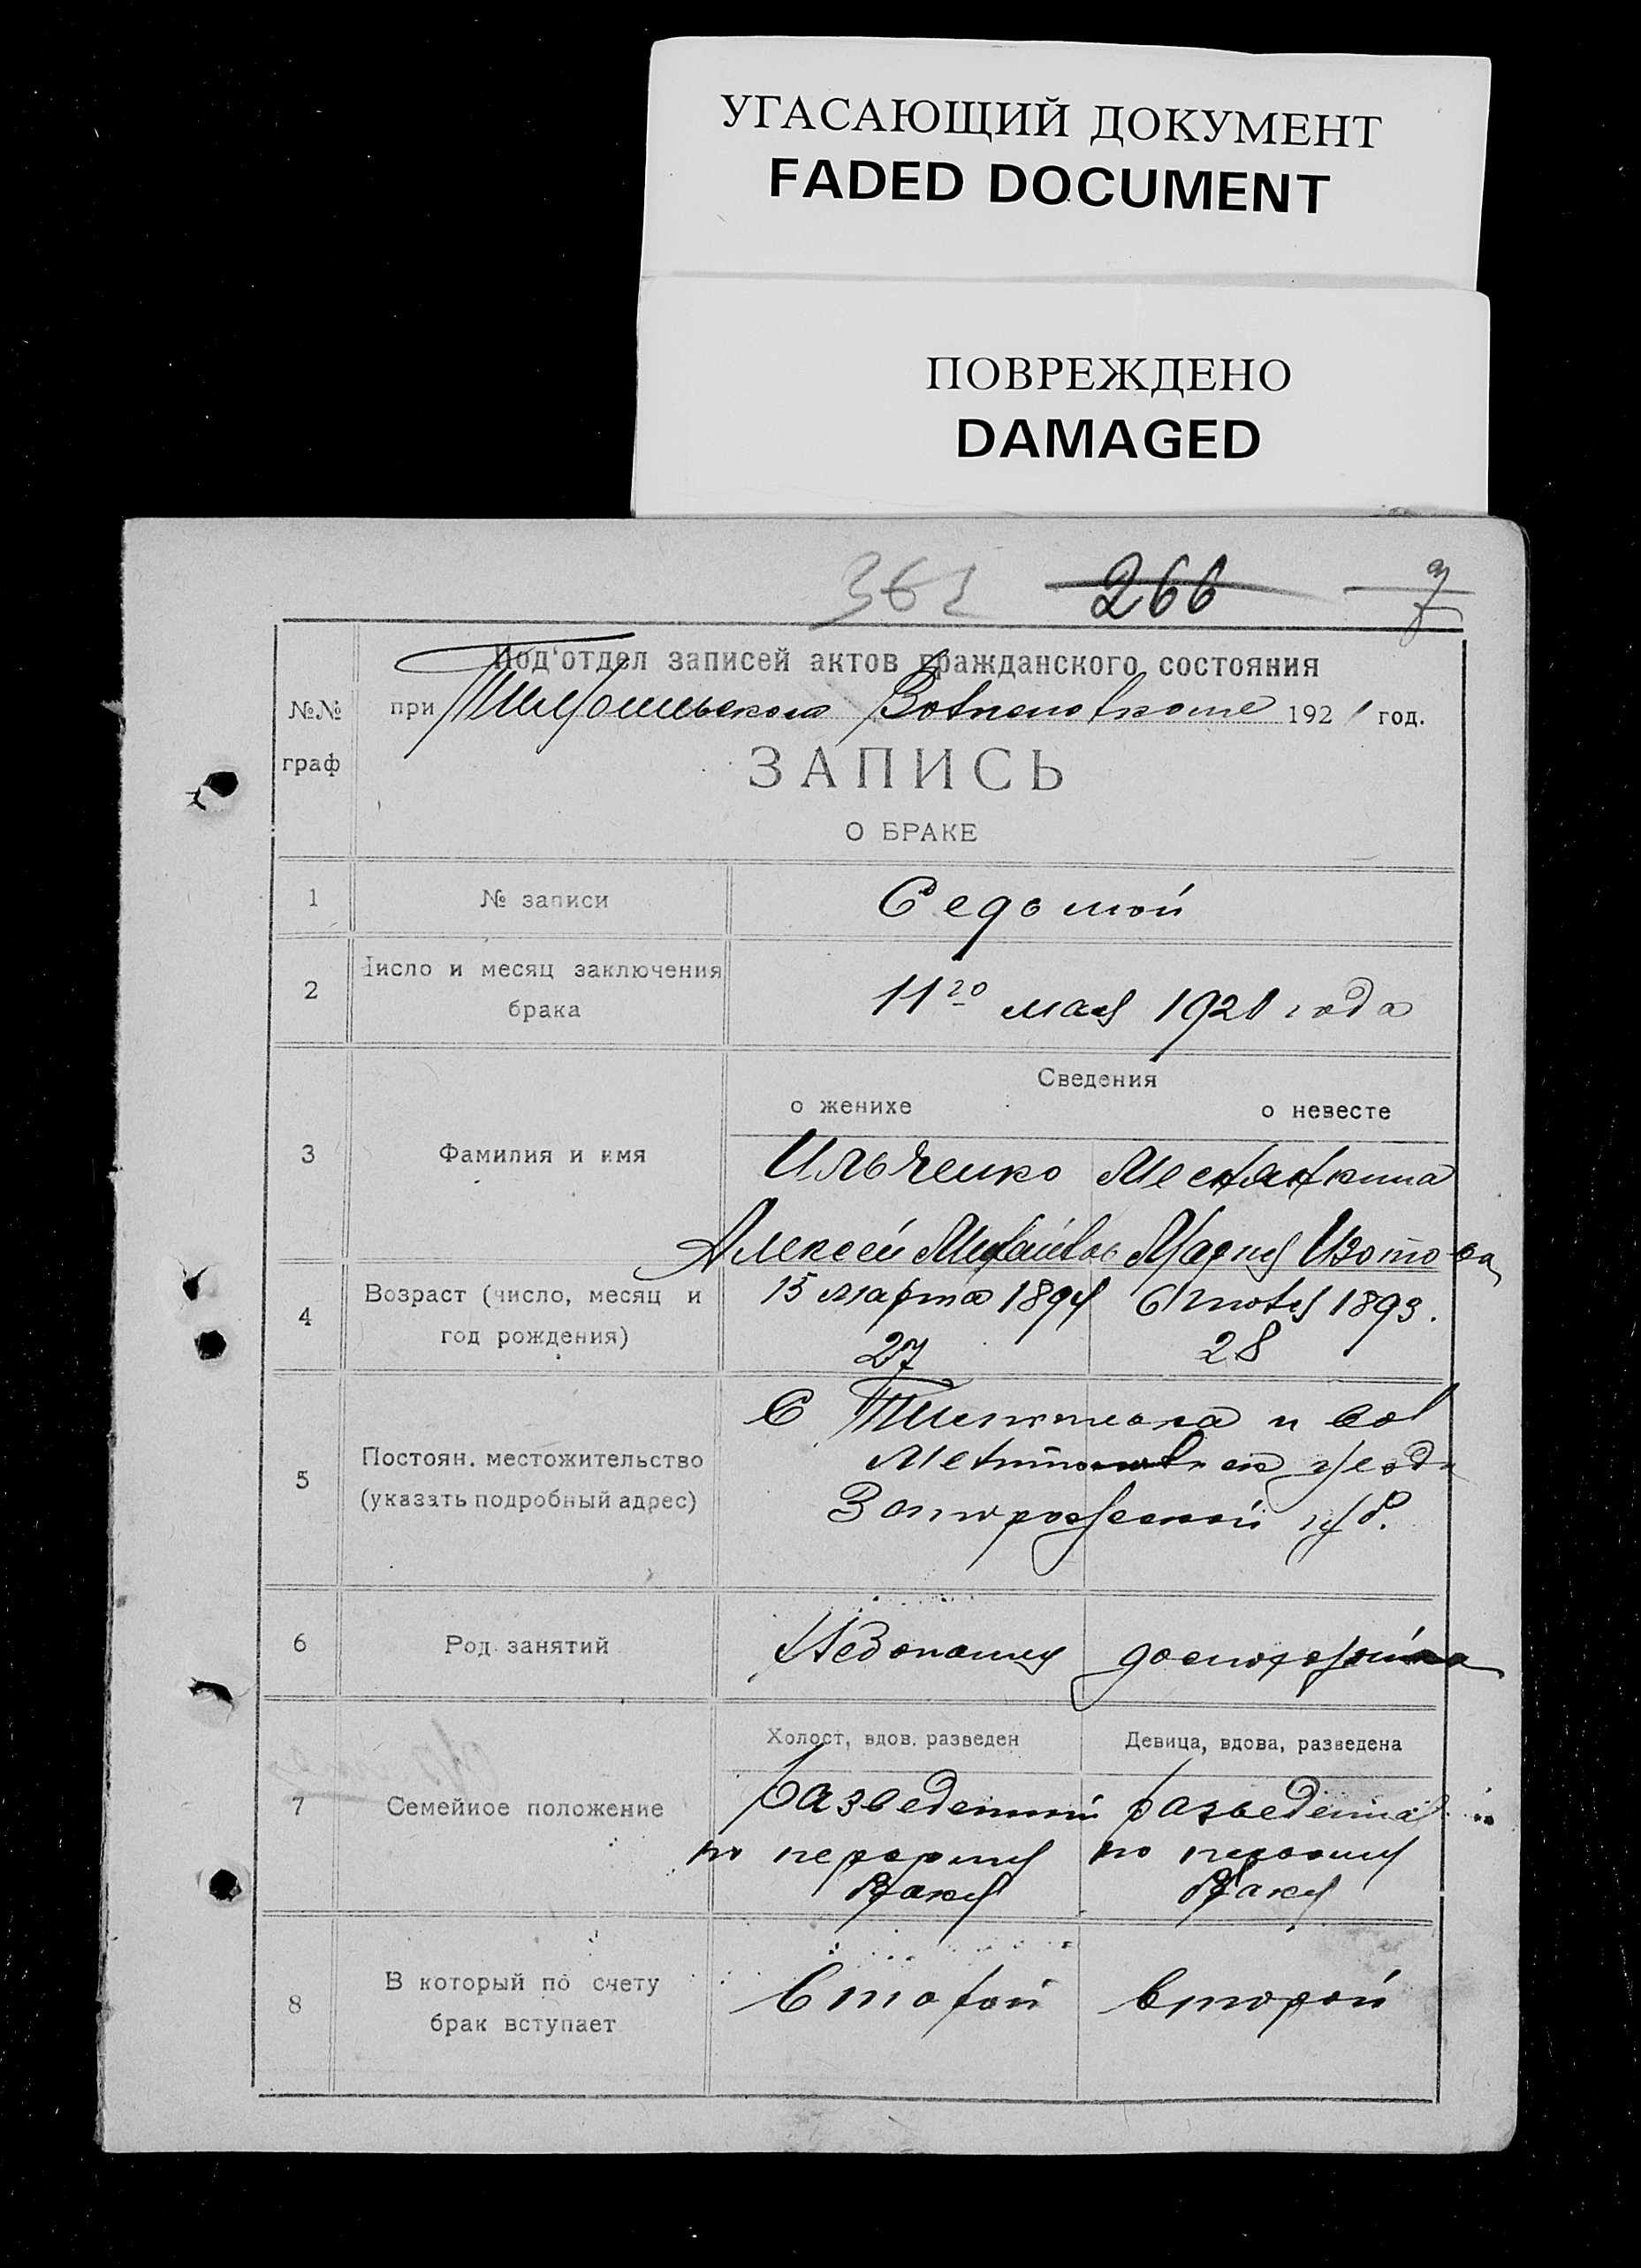 УГАСАЮЩИЙ ДОКУМЕНТ
FADED DOCUMENT
ПОВРЕЖДЕНО
DAMAGED
266
7
Под'отдел записей актов гражданского состояния
№№ граф
при 1921 год.
ЗАПИСЬ
О БРАКЕ
1 № записи Седьмой
2 Число и месяц заключения брака
11го мая 1921 года
3 Фамилия и имя
Сведения
о женихе о невесте
Ильченко
Алексей Мария Изотова
4 Возраст (число, месяц и год рождения)
15 марта 1894 6 1893.
27 28
5 Постоян. местожительство (указать подробный адрес)
С и вол
уезда
Запорожской губ.
6 Род занятий
7 Семейное положение
Холост, вдов. разведен Девица, вдова, разведена
разведенный разведенная
по первому по первому
браку браку
8 В который по счету брак вступает
второй второй